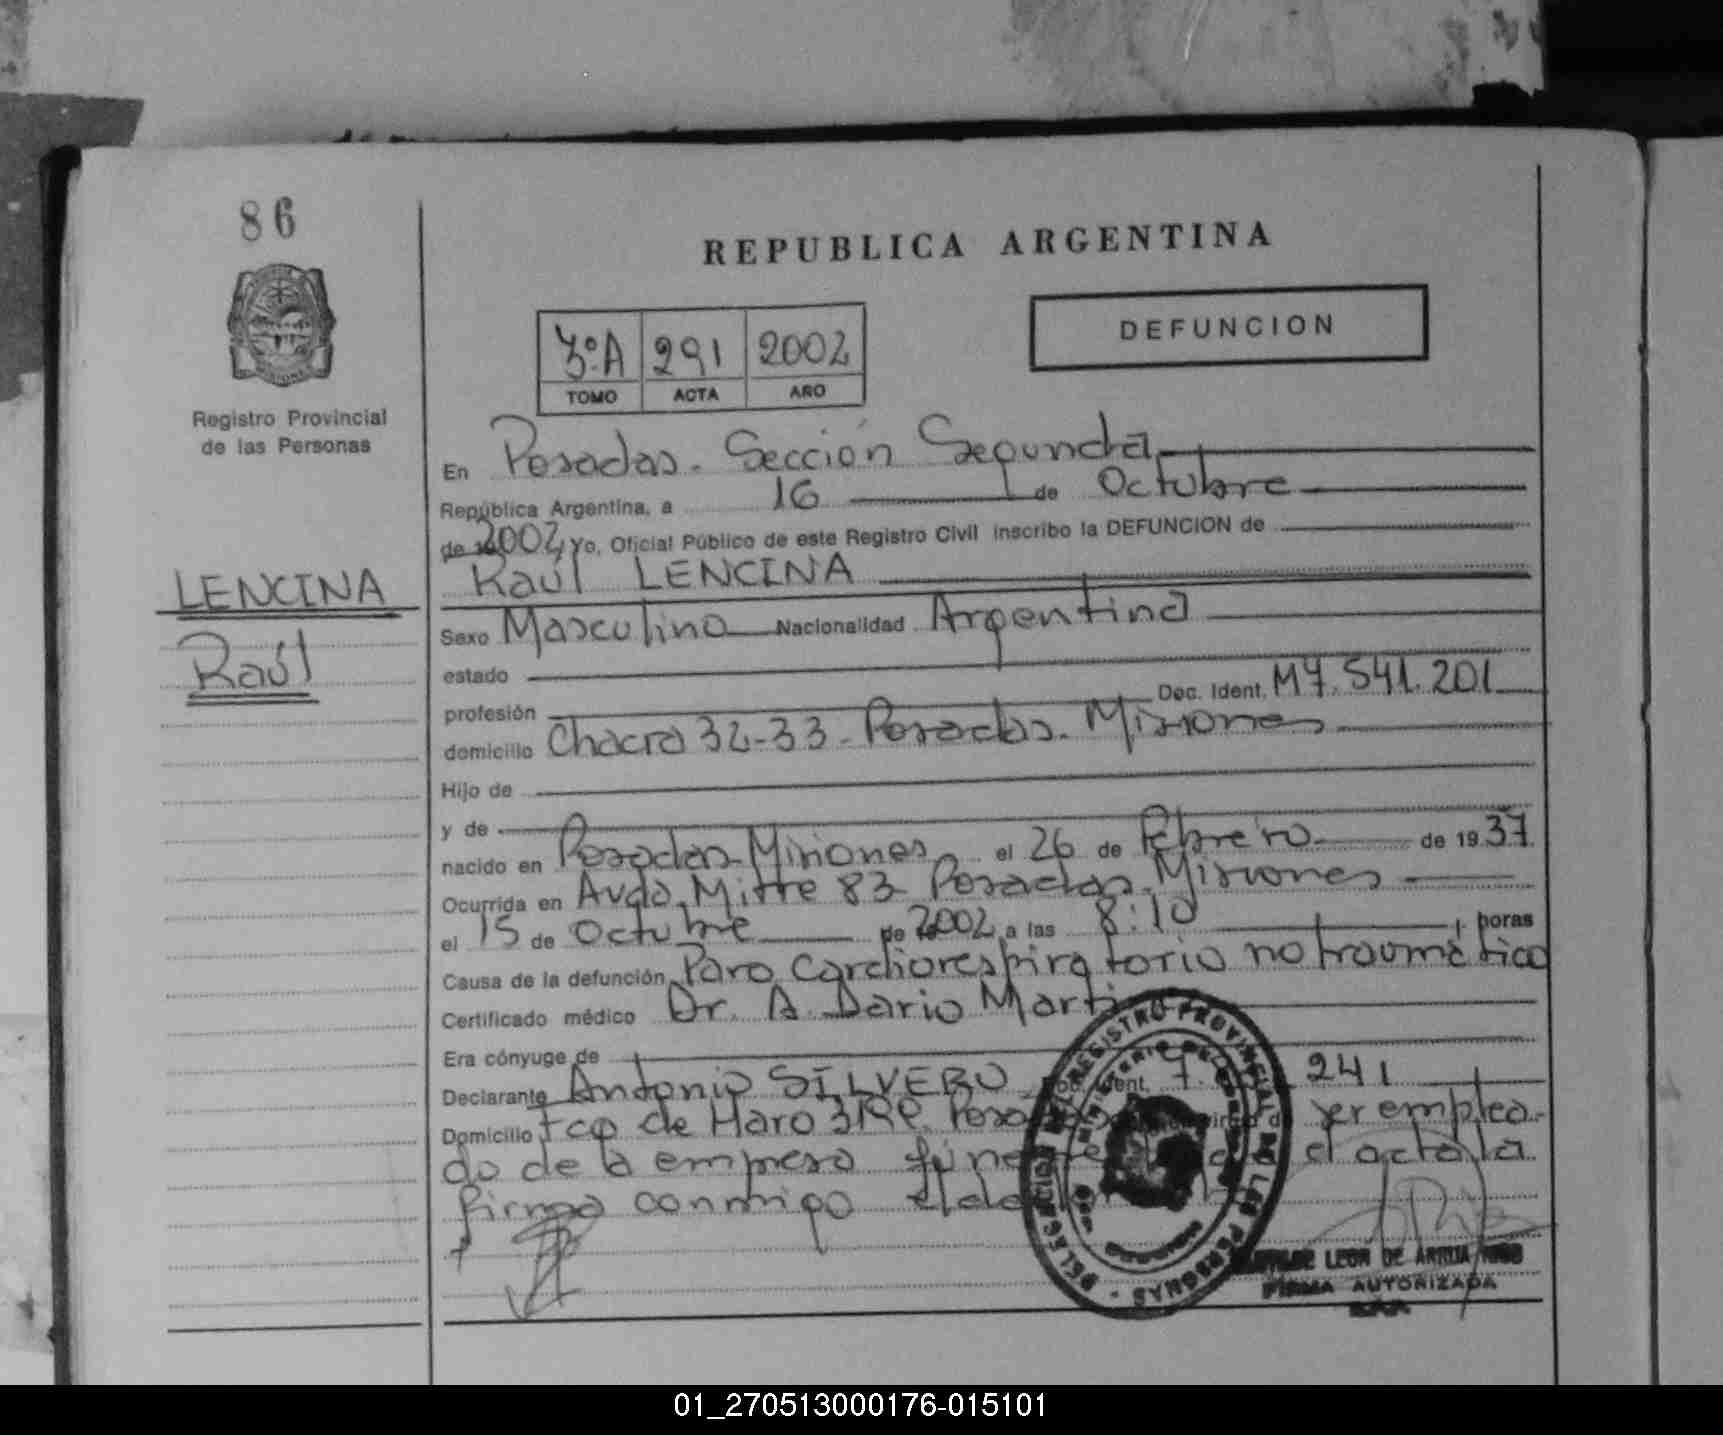 86
REPUBLICA ARGENTINA
DEFUNCION
3º.A 291 2002
TOMO ACTA AÑO
Registro Provincial
de las Personas
En Posadas. Sección Segunda
República Argentina, a 16 de Octubre
de 2002, Yo, Oficial Público de este Registro Civil inscribo la DEFUNCION de
Raúl LENCINA
LENCINA
Raúl
Sexo Masculino Nacionalidad Argentina
estado
profesión Doc. Ident. M7.541.201
domicilio Chacra 32-33. Posadas. Misiones
Hijo de
y de
nacido en Posadas-Misiones el 26 de Febrero de 1937
Ocurrida en Avda. Mitre 83 Posadas. Misiones
el 15 de Octubre de 2002 a las 8:10 horas
Causa de la defunción Paro Cardiorespiratorio no traumático
Certificado médico Dr. A. Dario Marti
Era cónyuge de
Declarante Antonio SILVERO Doc. Ident. 7. 241
Domicilio Fco de Haro ser emplea-
do de la empresa el acta la
firma conmigo
DELEGACION DEL REGISTRO PROVINCIAL DE LAS PERSONAS
LEON DE
FIRMA AUTORIZADA
01_270513000176-015101